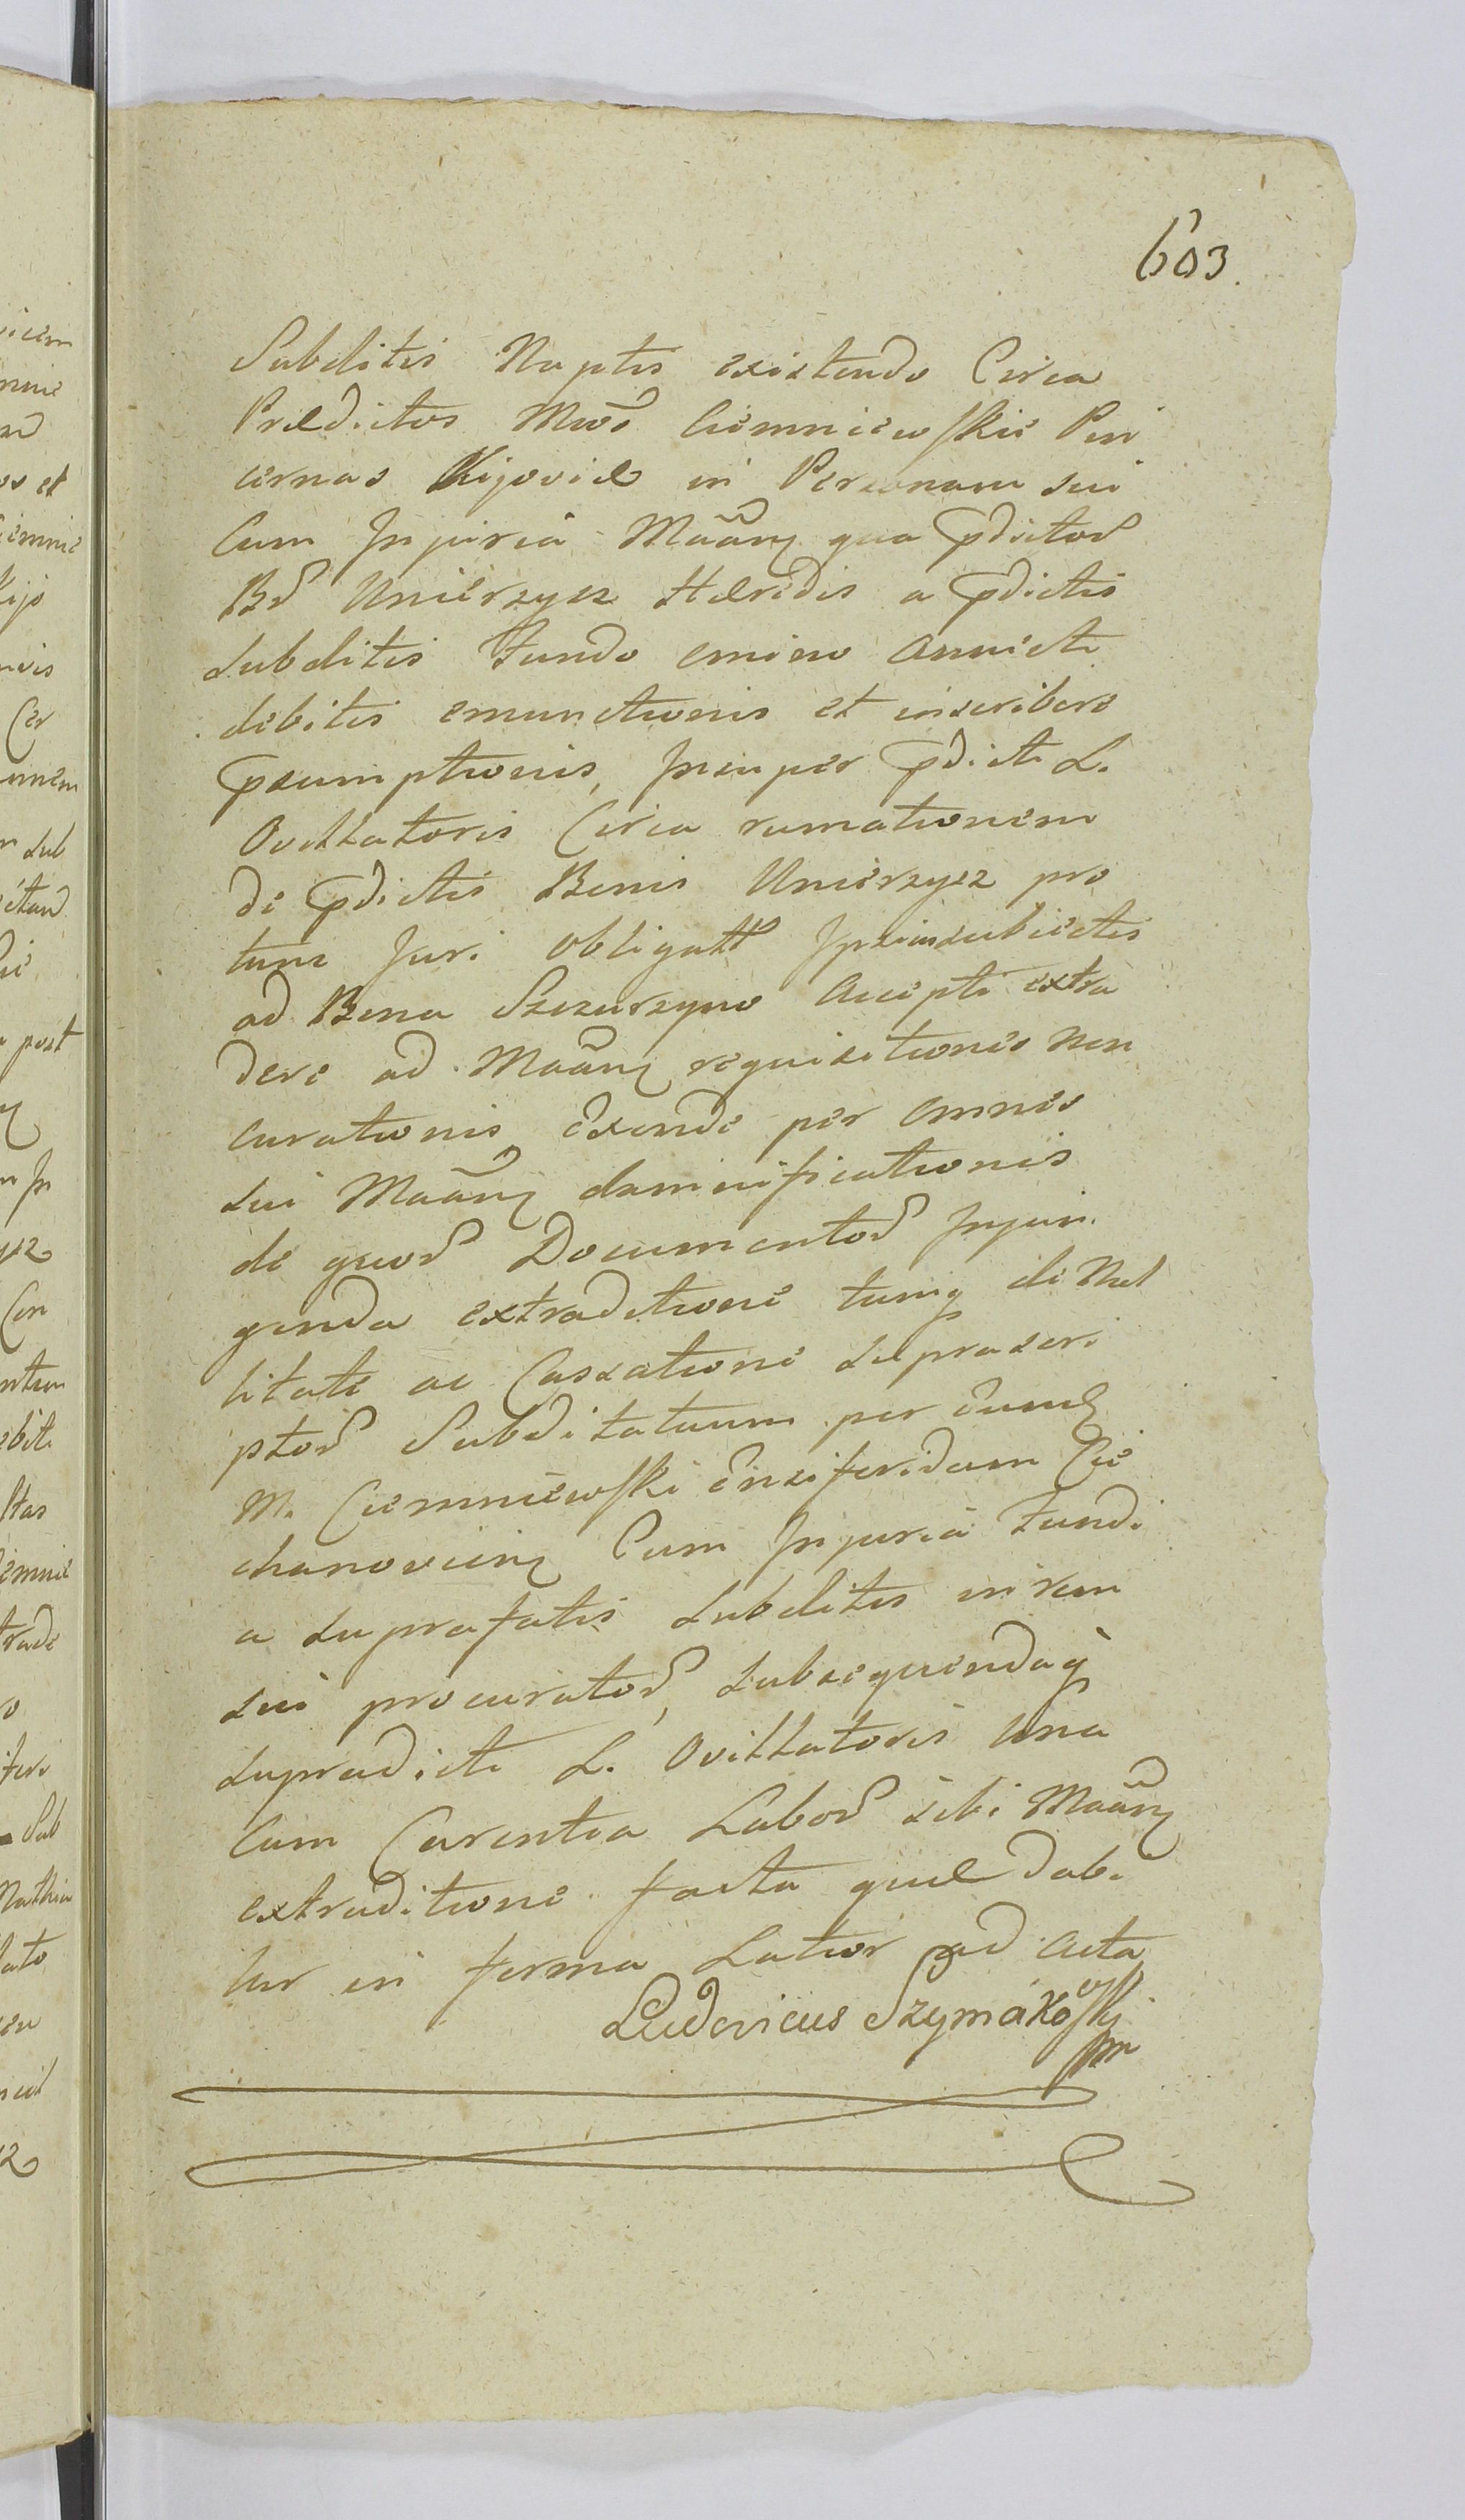 603.
Subditis Nuptis existendo Circa
Prædictos Mcos Ciemniewskie Pin
cernas Kijoviæ in Personam sui
Cum Injuria Maãnꝫ qua pdictoꝝ
Bꝝ Unierzysz Hæredis a pdictis
subditis fundo emino annicti
debitis emunctionis et inscribere
psumptionis, Insuper pdicti L.
Ovillatoris Circa rumationem
de pdictis Bonis Unierzysz pro
tunc Juri obligatt
ad Bona Szczurzyno Accepti extra
dere ad Maãnꝫ requisitiones non
curationis, exinde per omnes
sui Maãnꝫ damnificationis
de quoꝝ Documentoꝝ Injun
genda extraditione tumq de Nul
litate ac Cassatione suprascri
ptoꝝ Subditatuum per eumd
M. Ciemniewski Ensiferidam Cie
chanovienꝫ Cum Injuria fundi
a suprafatis subditis in rem
sui procuratoꝝ, subsequendaq
supradicti L. Ovillatoris una
Cum Carentia Laboꝝ sibi Maãnꝫ
extraditione facta quæ dab.
tur in forma Latior ad Acta
Ludovicus Szymákowski
mp